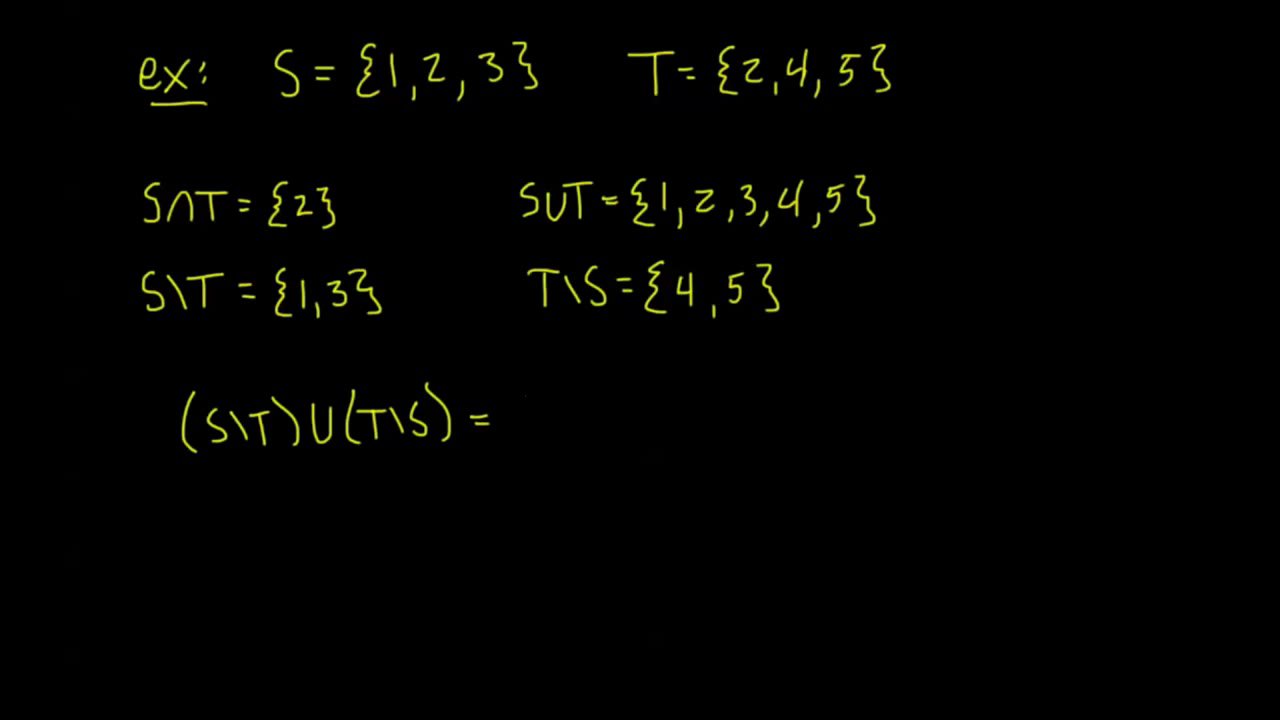 ex: S = {1, 2, 3} T = {2, 4, 5}
S∩T = {2} S∪T = {1, 2, 3, 4, 5}
S\T = {1, 3} T\S = {4, 5}
(S\T) ∪ (T\S) =